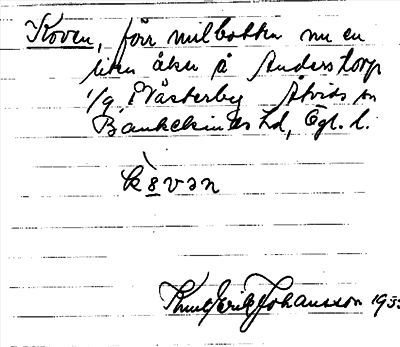 Koven, förr milbotten nu en
liten åker å Anderstorp
1/9, i Västerby Åtvids sn
Bankekinds hd, Ögl. l.
kɵ̀vən
Knut Erik Johansson 193